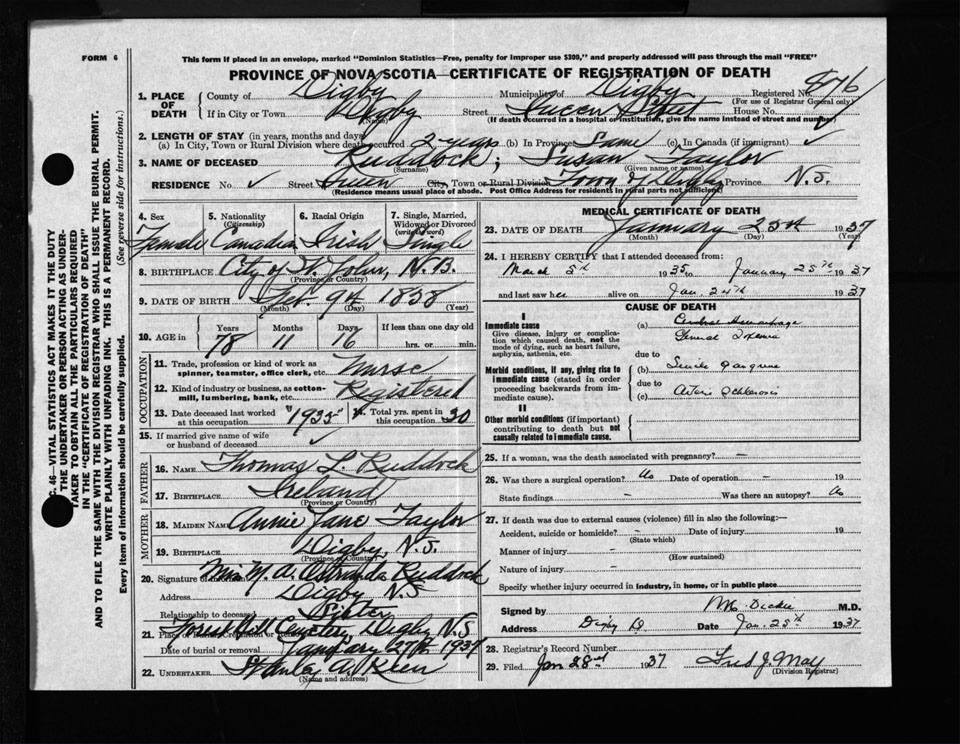 FORM 6
This form if placed in an envelope, marked "Dominion Statistics—Free, penalty for improper use $300," and properly addressed will pass through the mail "FREE"
PROVINCE OF NOVA SCOTIA—CERTIFICATE OF REGISTRATION OF DEATH
1. PLACE OF DEATH
County of Digby Municipality of Digby Registered No. 876
(For use of Registrar General only)
If in City or Town Digby Street Queen Street House No.
(Name)
(If death occurred in a hospital or institution, give the name instead of street and number)
2. LENGTH OF STAY (in years, months and days)
(a) In City, Town or Rural Division where death occurred 2 years (b) In Province Same (c) In Canada (if immigrant) ✓
3. NAME OF DECEASED Ruddock; Susan Taylor
(Surname) (Given name or names)
RESIDENCE No. ✓ Street Queen City, Town or Rural Division Town of Digby Province N.S.
(Residence means usual place of abode. Post Office Address for residents in rural parts not sufficient)
4. Sex Female
5. Nationality (Citizenship) Canadian
6. Racial Origin Irish
7. Single, Married, Widowed or Divorced (write the word) Single
8. BIRTHPLACE City of St. John, N.B.
(Province or Country)
9. DATE OF BIRTH 9th 1858
(Month) (Day) (Year)
10. AGE in Years 78 Months 11 Days 16 If less than one day old hrs. or min.
OCCUPATION
11. Trade, profession or kind of work as spinner, teamster, office clerk, etc. Nurse
12. Kind of industry or business, as cotton-mill, lumbering, bank, etc. Registered
13. Date deceased last worked at this occupation "1935" 14. Total yrs. spent in this occupation 30
15. If married give name of wife or husband of deceased ✓
FATHER
16. NAME Thomas L. Ruddock
17. BIRTHPLACE Ireland
(Province or Country)
MOTHER
18. MAIDEN NAME Annie Jane Taylor
19. BIRTHPLACE Digby, N.S.
(Province or Country)
20. Signature of informant Miss M. A. Ruddock
Address Digby N.S
Relationship to deceased Sister
21. Place of Burial, Cremation or Removal Forest Hill Cemetery, Digby N.S
Date of burial or removal January 27th 1937
22. UNDERTAKER Stanley A. Keen
(Name and address)
MEDICAL CERTIFICATE OF DEATH
23. DATE OF DEATH January 25th 1937
(Month) (Day) (Year)
24. I HEREBY CERTIFY that I attended deceased from:
March 5th 1935 to January 25th 1937
and last saw her alive on Jan. 24th 1937
CAUSE OF DEATH
I
Immediate cause
Give disease, injury or complication which caused death, not the mode of dying, such as heart failure, asphyxia, asthenia, etc.
(a) Cerebral Hemorrhage
General Toxemia
due to
Morbid conditions, if any, giving rise to immediate cause (stated in order proceeding backwards from immediate cause).
(b) Senile Gangrene
due to
(c) Arterio Schlerosis
II
Other morbid conditions (if important) contributing to death but not causally related to immediate cause.
25. If a woman, was the death associated with pregnancy? –
26. Was there a surgical operation? No Date of operation – 19
State findings – Was there an autopsy? No
27. If death was due to external causes (violence) fill in also the following:—
Accident, suicide or homicide? – Date of injury 19
(State which)
Manner of injury –
(How sustained)
Nature of injury –
Specify whether injury occurred in industry, in home, or in public place
Signed by Dickie M.D.
Address Digby Date Jan. 25th 1937
28. Registrar's Record Number
29. Filed Jan 28 1937 Fred J. May
(Division Registrar)
C. 46—VITAL STATISTICS ACT MAKES IT THE DUTY
OF THE UNDERTAKER OR PERSON ACTING AS UNDERTAKER TO OBTAIN ALL THE PARTICULARS REQUIRED
IN THE "CERTIFICATE OF REGISTRATION OF DEATH"
AND TO FILE THE SAME WITH THE DIVISION REGISTRAR WHO SHALL ISSUE THE BURIAL PERMIT.
WRITE PLAINLY WITH UNFADING INK. THIS IS A PERMANENT RECORD.
Every item of information should be carefully supplied. (See reverse side for instructions.)